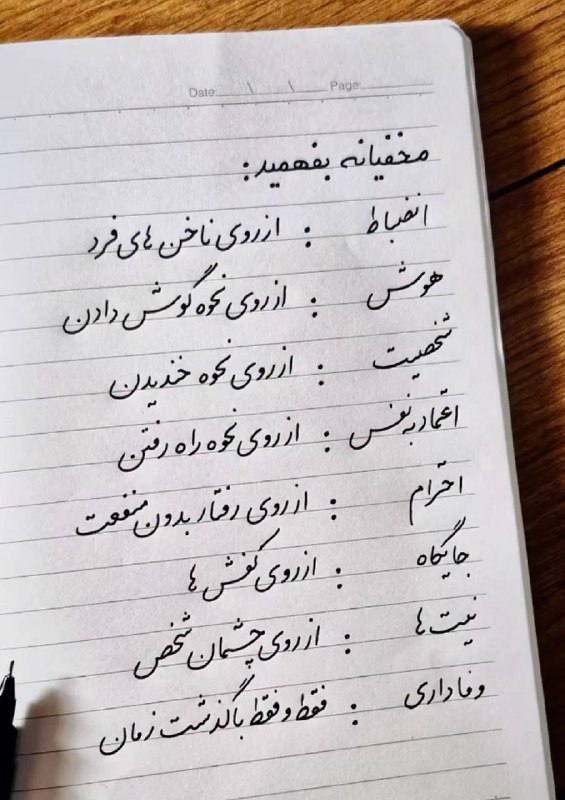 Date: \ \ Page:
مخفیانه بفهمید:
انضباط : از روی ناخن های فرد
هوش : از روی نحوه گوش دادن
شخصیت : از روی نحوه خندیدن
اعتماد به نفس : از روی نحوه راه رفتن
احترام : از روی رفتار بدون منفعت
جایگاه : از روی کفش ها
نیت ها : از روی چشمان شخص
وفاداری : فقط و فقط با گذشت زمان